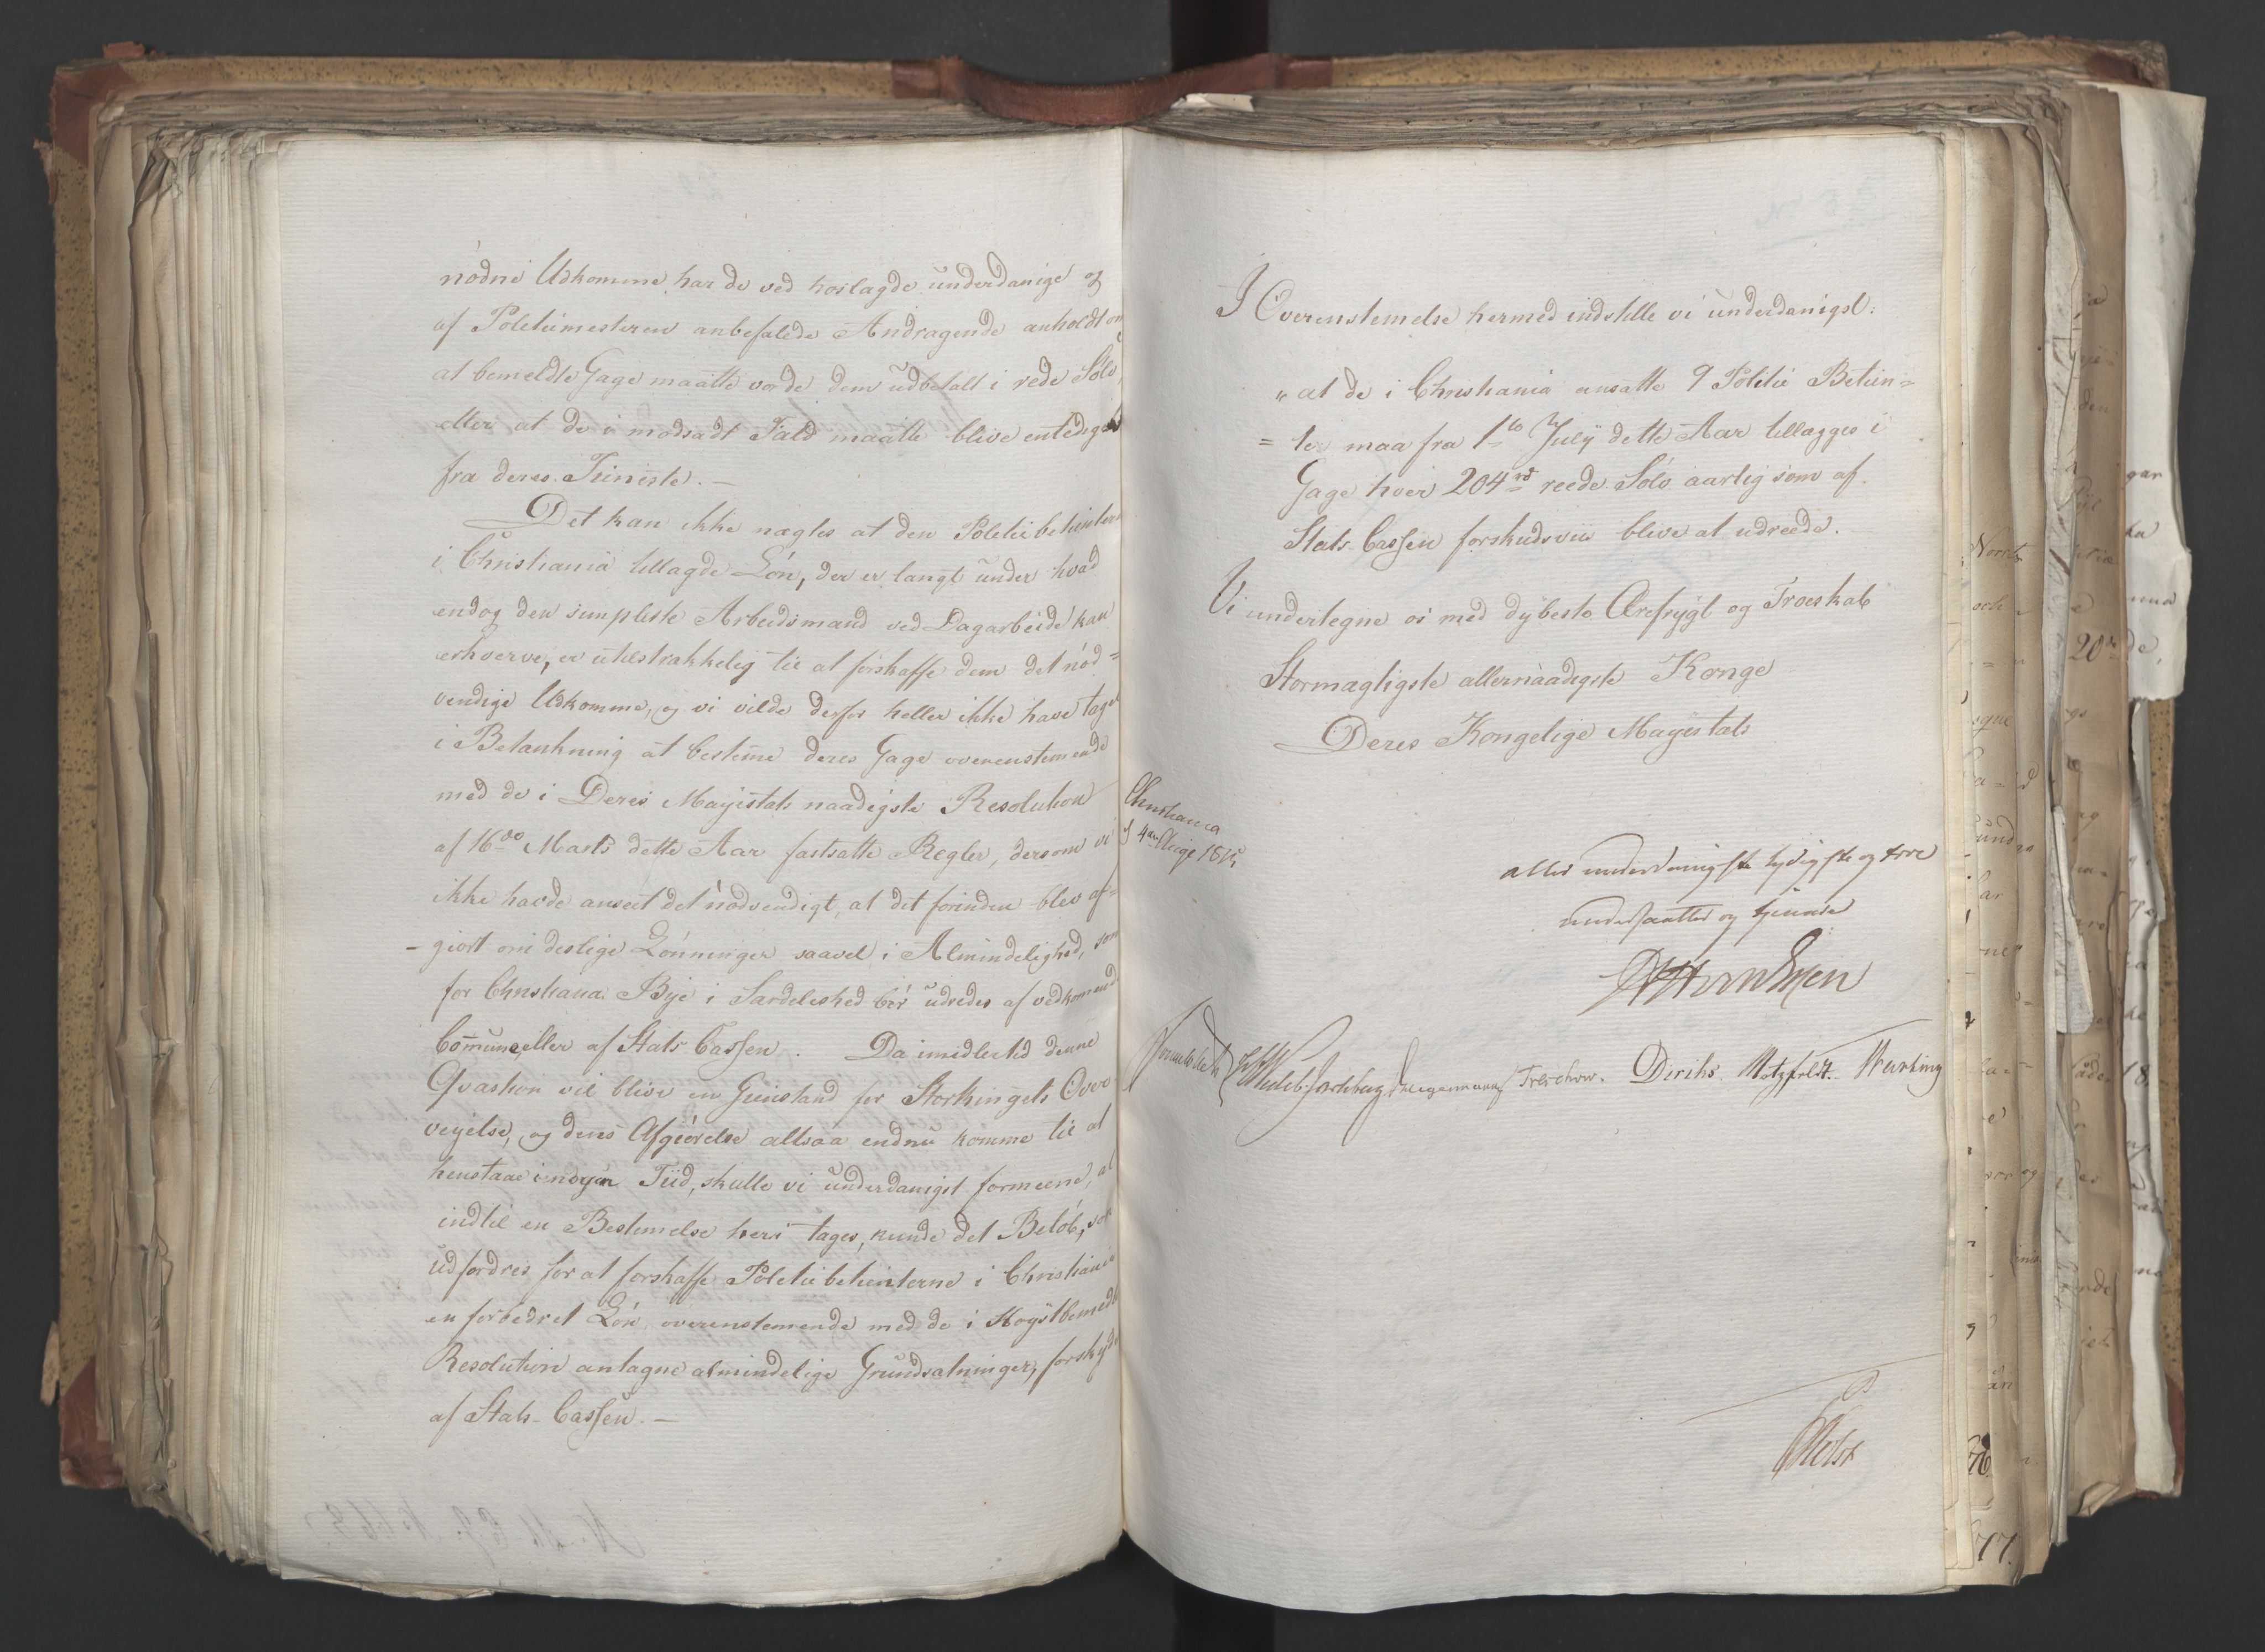 nödne Udkomme, har de ved hoslagde underdanige og
af Politiemesteren anbefalede Andragende anholdt om
at bemeldte Gage maatte vorde dem udbetalt i rede Sölv,
eller at de i modsadt Fald maatte blive entlediget
fra deres Tieniste. —
Det kan ikke nægtes at den Politiebetienterne
i Christiania tillagde Lön, der er langt under hvad
endog den simpleste Arbeidsmand ved Dagarbeide kan
erhverve, er utilstrækkelig til at forskaffe dem det nöd=
vendige Udkomme, og vi vilde derfor heller ikke have taget
i Betænkning at bestemme deres Gage overenstemmende
med de i Deres Mayestæts naadigste Resolution
af 16de Marts dette Aar fastsatte Regler, dersom vi
ikke havde anseet det nödvendigt, at det forinden blev af=
-giort om deslige Lönninger saavel i Almindelighed, som
for Christiania Bye i Særdeleshed bör udredes af vedkommende
Commune eller af Stats Cassen. Da imidlertid denne
Qvæstion vil blive en Gienstand for Storthingets Over
veyelse, og dens Afgiörelse altsaa endnu komme til at
henstaae i nogen Tiid, skulle vi underdanigst formeene, at
indtil en Bestemelse heri tages, kunde det Belöb, som
udfordres for at forskaffe Politiebetienterne i Christiania
en forbedret Lön, overenstemende med de i Höystbemeldte
Resolution antagne almindelige Grundsætninger, forskydes
af Stats-Cassen. —
I Overenstemelse hermed indstille vi underdanigst:
"at de i Christiania ansatte 9 Politie Betien=
=ter maa fra 1te July dette Aar tillægges i
Gage hver 204 rd reede Sölv aarlig som af
Stats-Cassen forskudsviis blive at udreede.
Vi undertegne os med dybeste Ærefrygt og Troeskab
Stormægtigste allernaadigste Konge
Deres Kongelige Mayestæts
Christiania
d 4de Aug 1815
allerunderdanigste lydigste og troe
undersaatter og tienere
Sommerhielm Hegermann Treschow. Diriks Motzfeldt.
Holst